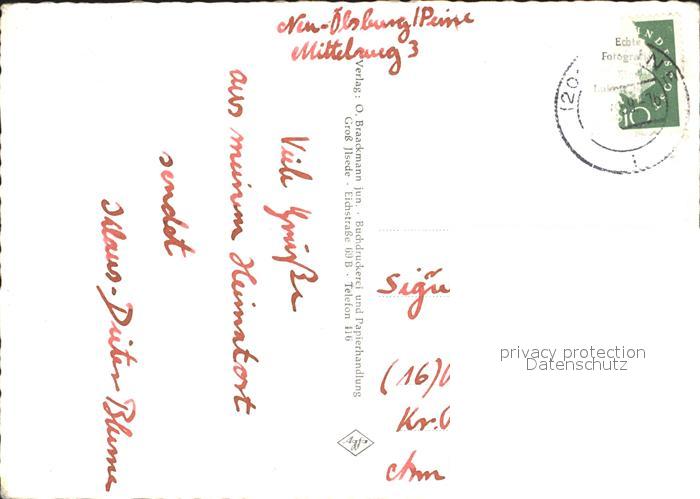 Neu-Ölsburg/Peine
Mittelweg 3
Viele Grüße
aus meinem Heimatort
sendet
Klaus-Dieter Blume
Verlag: O. Braackmann jun. · Buchdruckerei und Papierhandlung
Groß Ilsede · Eichstraße 69B · Telefon 416
Echte
Fotogra
UNDES
10
(20
Sigru
(16)
Kr.
Am
privacy protection
Datenschutz